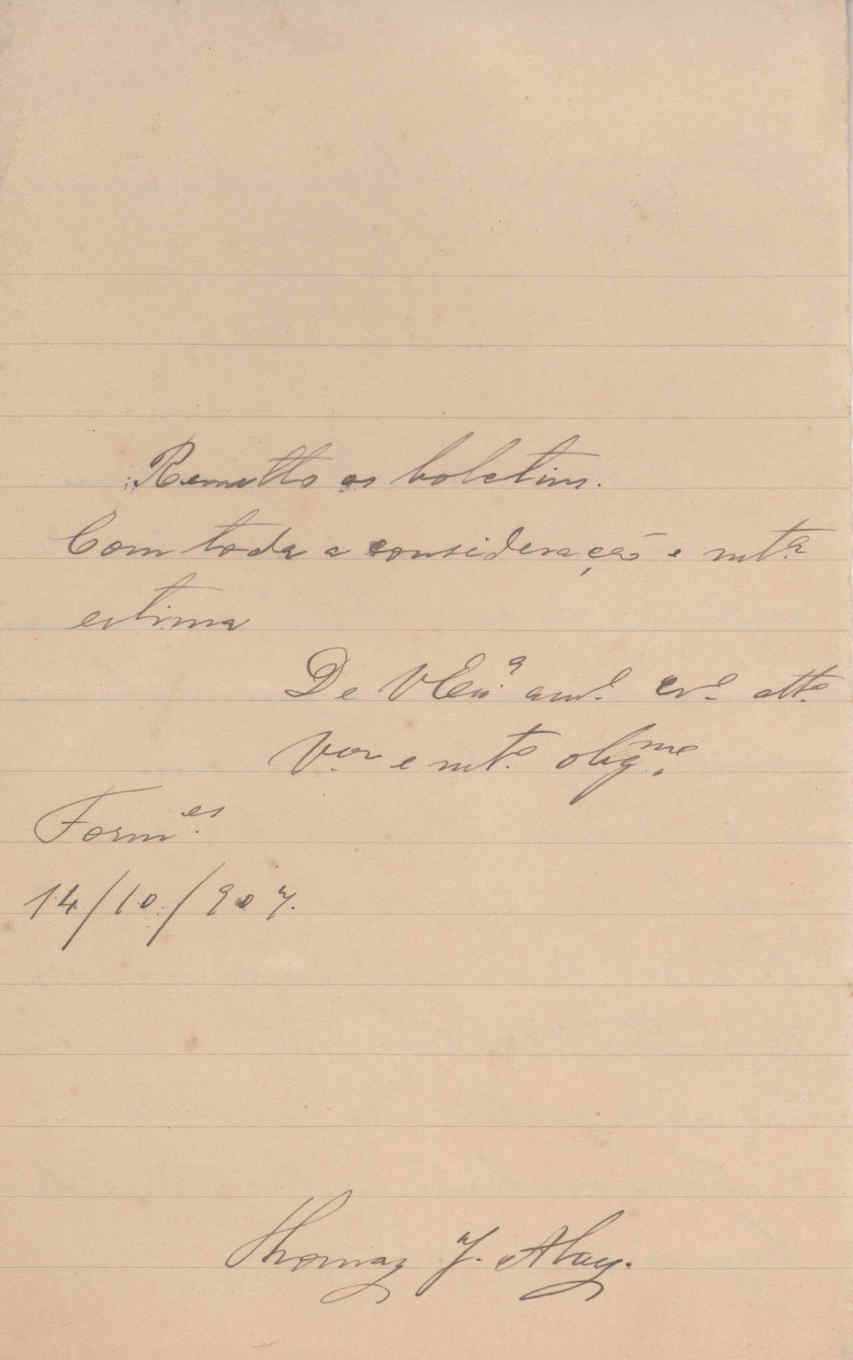 Remetto os boletins.
Com toda a consideração e mt.ª
estima
De V Exª am.º cr.º att.º
V.or e mt.º obig.mo
Form.es
14/10/907.
Thomaz J.